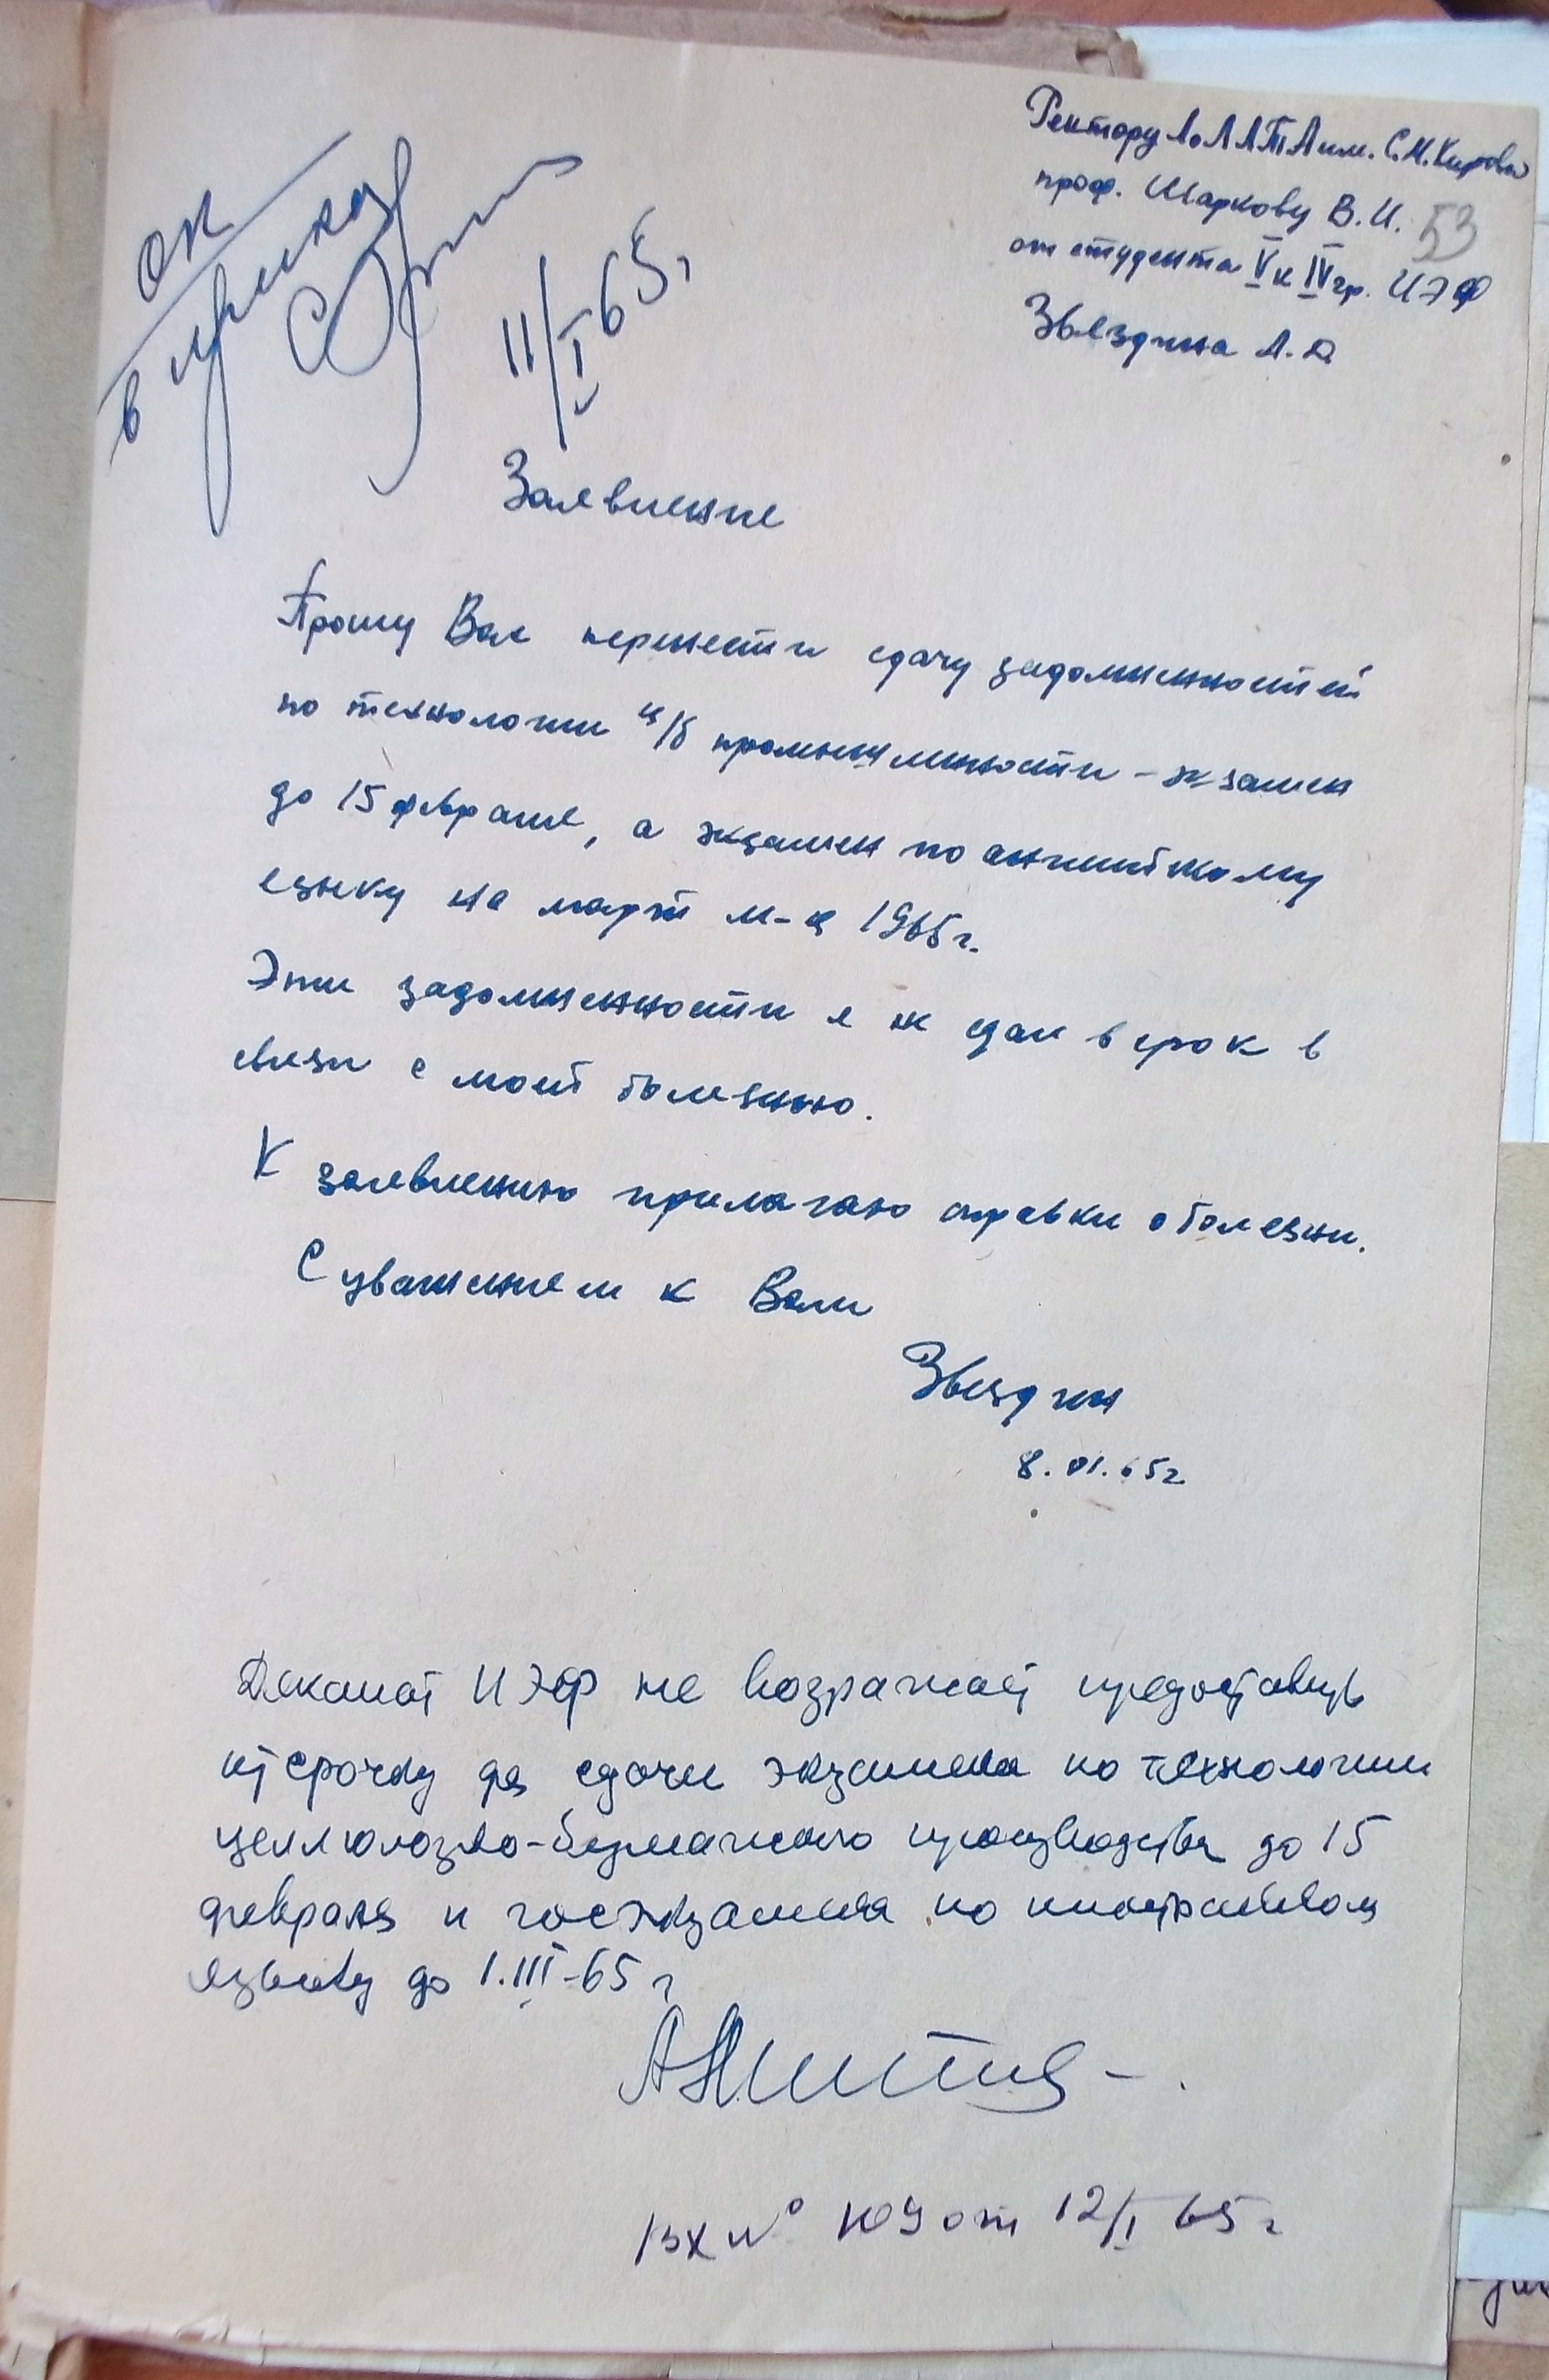 Ректору ЛоЛЛТА им. С.М. Кирова
проф. Шаркову В.И.
53
от студента V к IV гр. ИЭФ
Звездина А.А
ОК
в приказ
11/I 65г
Заявление
Прошу Вас перенести сдачу задолженностей
по технологии ц/б промышленности - экзамен
до 15 февраля, а экзамен по английскому
языку на март м-ц 1965г.
Эти задолженности я не сдал в срок в
связи с моей болезнью.
К заявлению прилагаю справки о болезни.
С уважением к Вам
Звездин
8.01.65г
Деканат ИЭФ не возражает предоставить
отсрочку для сдачи экзамена по технологии
целлюлозно-бумажного производства до 15
февраля и госэкзамена по иностранному
языку до 1.III-65 г
Вх № 109 от 12/I 65 г